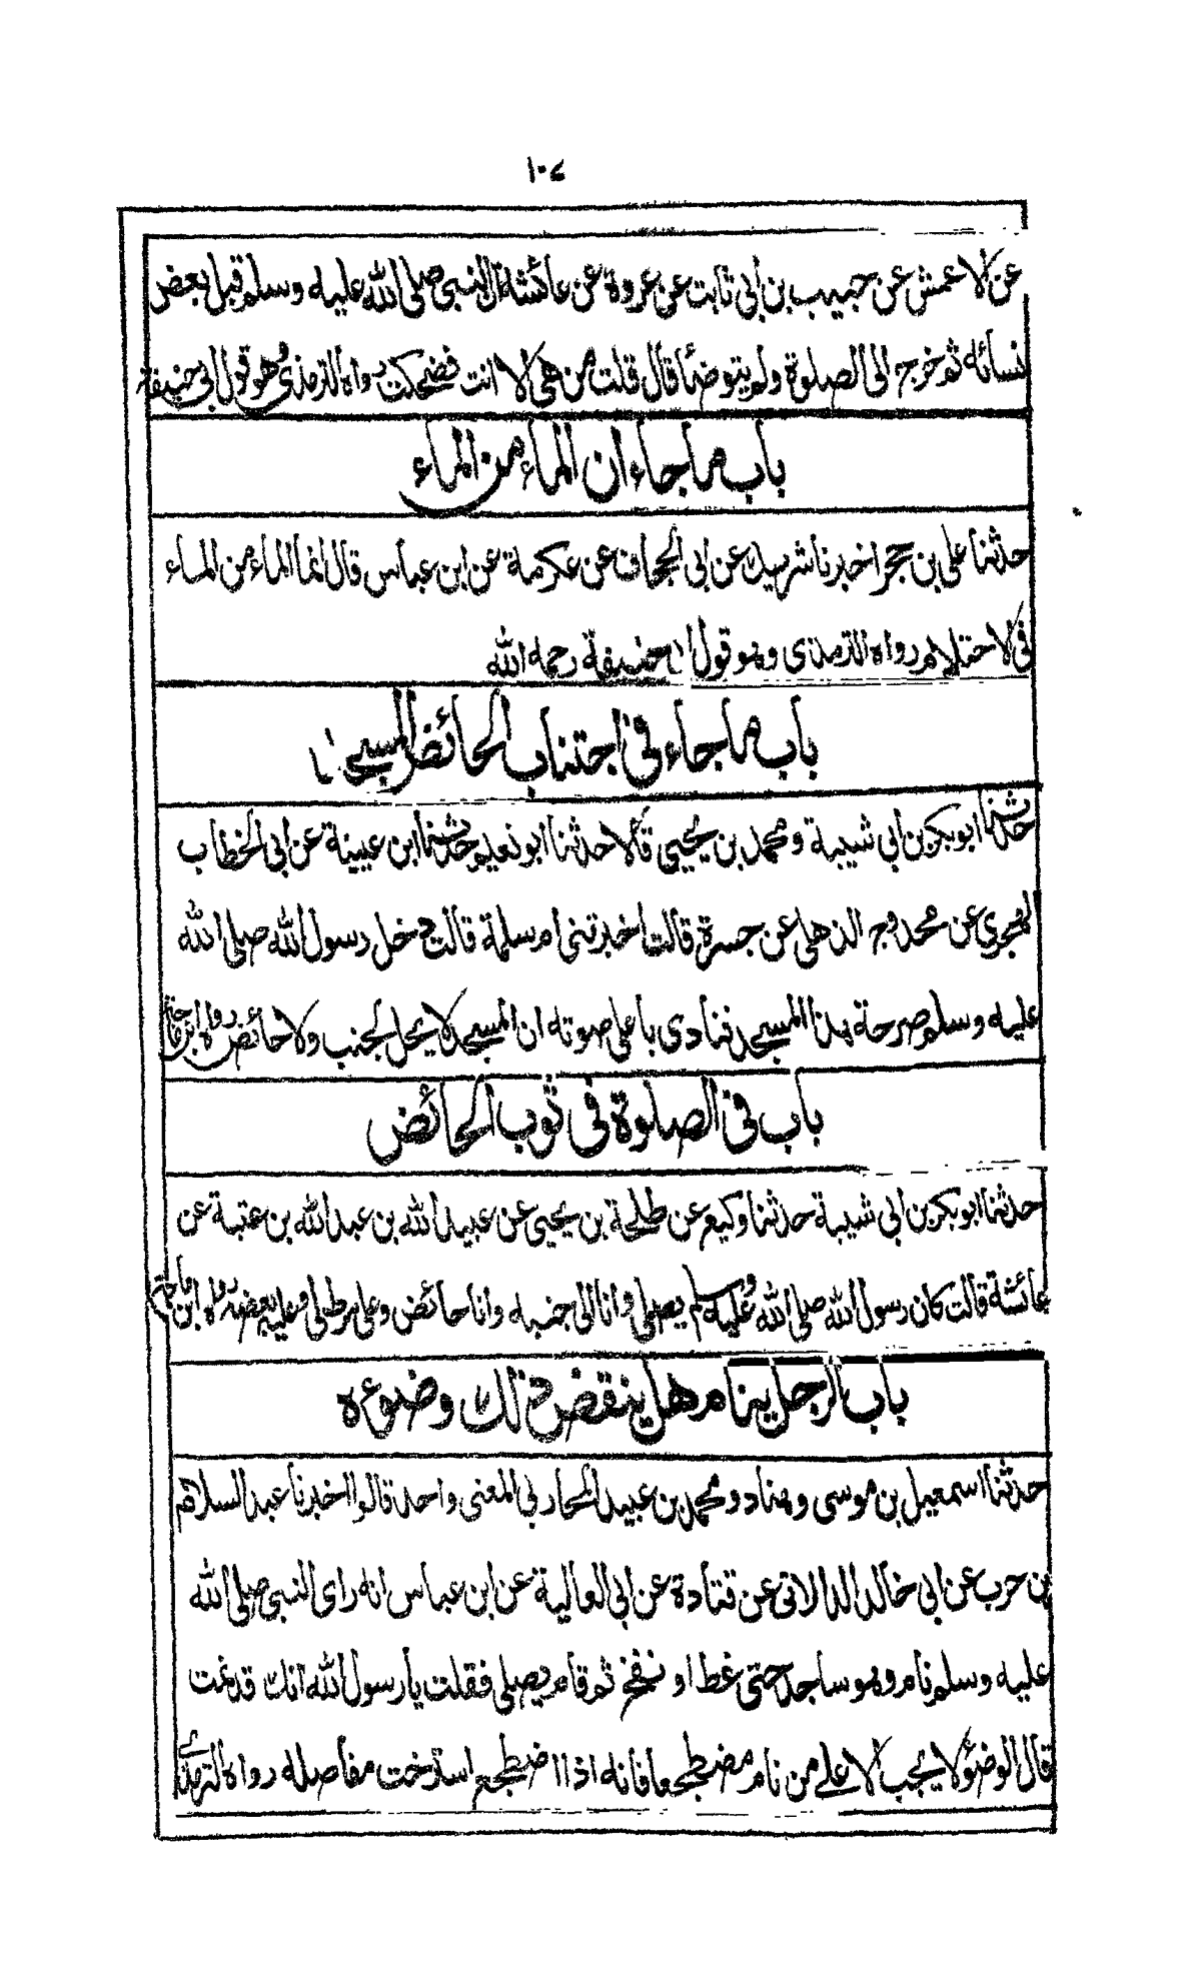 ١٠٤
عن الاعمش عن حبيب بن ابي ثابت عن عروة عن عائشة ان النبي صلى الله عليه وسلم قبل بعض
نسائه ثم خرج الى الصلوة ولم يتوضأ قال قلت من هي الا انت فضحكت رواه الترمذي وهو قول ابي حنيفة
باب ما جاء ان الماء من الماء
حدثنا على بن حجر اخبرنا شريك عن ابي الجحاف عن عكرمة عن ابن عباس قال انما الماء من الماء
في الاحتلام رواه الترمذى وهو قول ابى حنيفة رحمه الله
باب ما جاء في اجتناب الحائض المسجد
حدثنا ابو بكر بن ابي شيبة ومحمد بن يحيى قالا حدثنا ابو نعيم حدثنا ابن عيينة عن ابي الخطاب
الهجري عن محدوج الذهلى عن جسرة قالت اخبرتنى ام سلمة قالت دخل رسول الله صلى الله
عليه وسلم صرحة هذا المسجد فنادى باعلى صوته ان المسجد لا يحل لجنب ولا حائض رواه ابن ماجة
باب في الصلوة في ثوب الحائض
حدثنا ابو بكر بن ابي شيبة حدثنا وكيع عن طلحة بن يحيى عن عبيد الله بن عبد الله بن عتبة عن
عائشة قالت كان رسول الله صلى الله عليه وسلم يصلي وانا الى جنبه وانا حائض وعلي مرط لي وعليه بعضه رواه ابن ماجة
باب الرجل ينام هل ينقض ذلك وضوءه
حدثنا اسمعيل بن موسى وهناد ومحمد بن عبيد المحاربي المعنى واحد قالوا اخبرنا عبد السلام
بن حرب عن ابي خالد الدالاني عن قتادة عن ابي العالية عن ابن عباس انه راى النبي صلى الله
عليه وسلم نام وهو ساجد حتى غط او نفخ ثم قام يصلي فقلت يا رسول الله انك قد نمت
قال الوضوء لا يجب الا على من نام مضطجعا فانه اذا اضطجع استرخت مفاصله رواه الترمذي